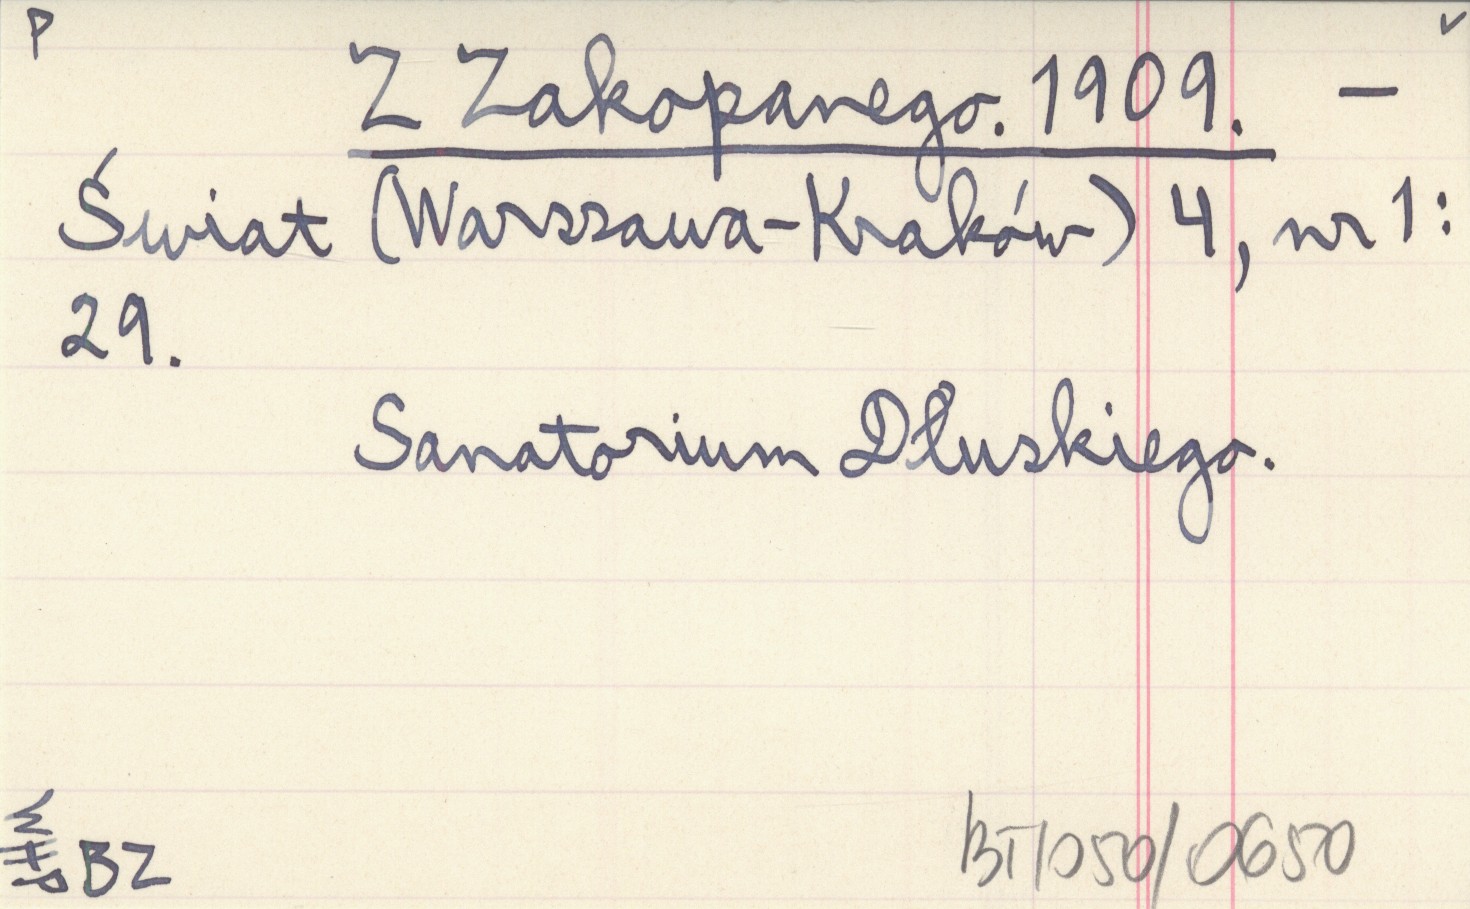 P v
Z Zakopanego. 1909. –
Świat (Warszawa-Kraków) 4, nr 1:
29.
Sanatorium Dłuskiego.
BZ
BT/050/0650